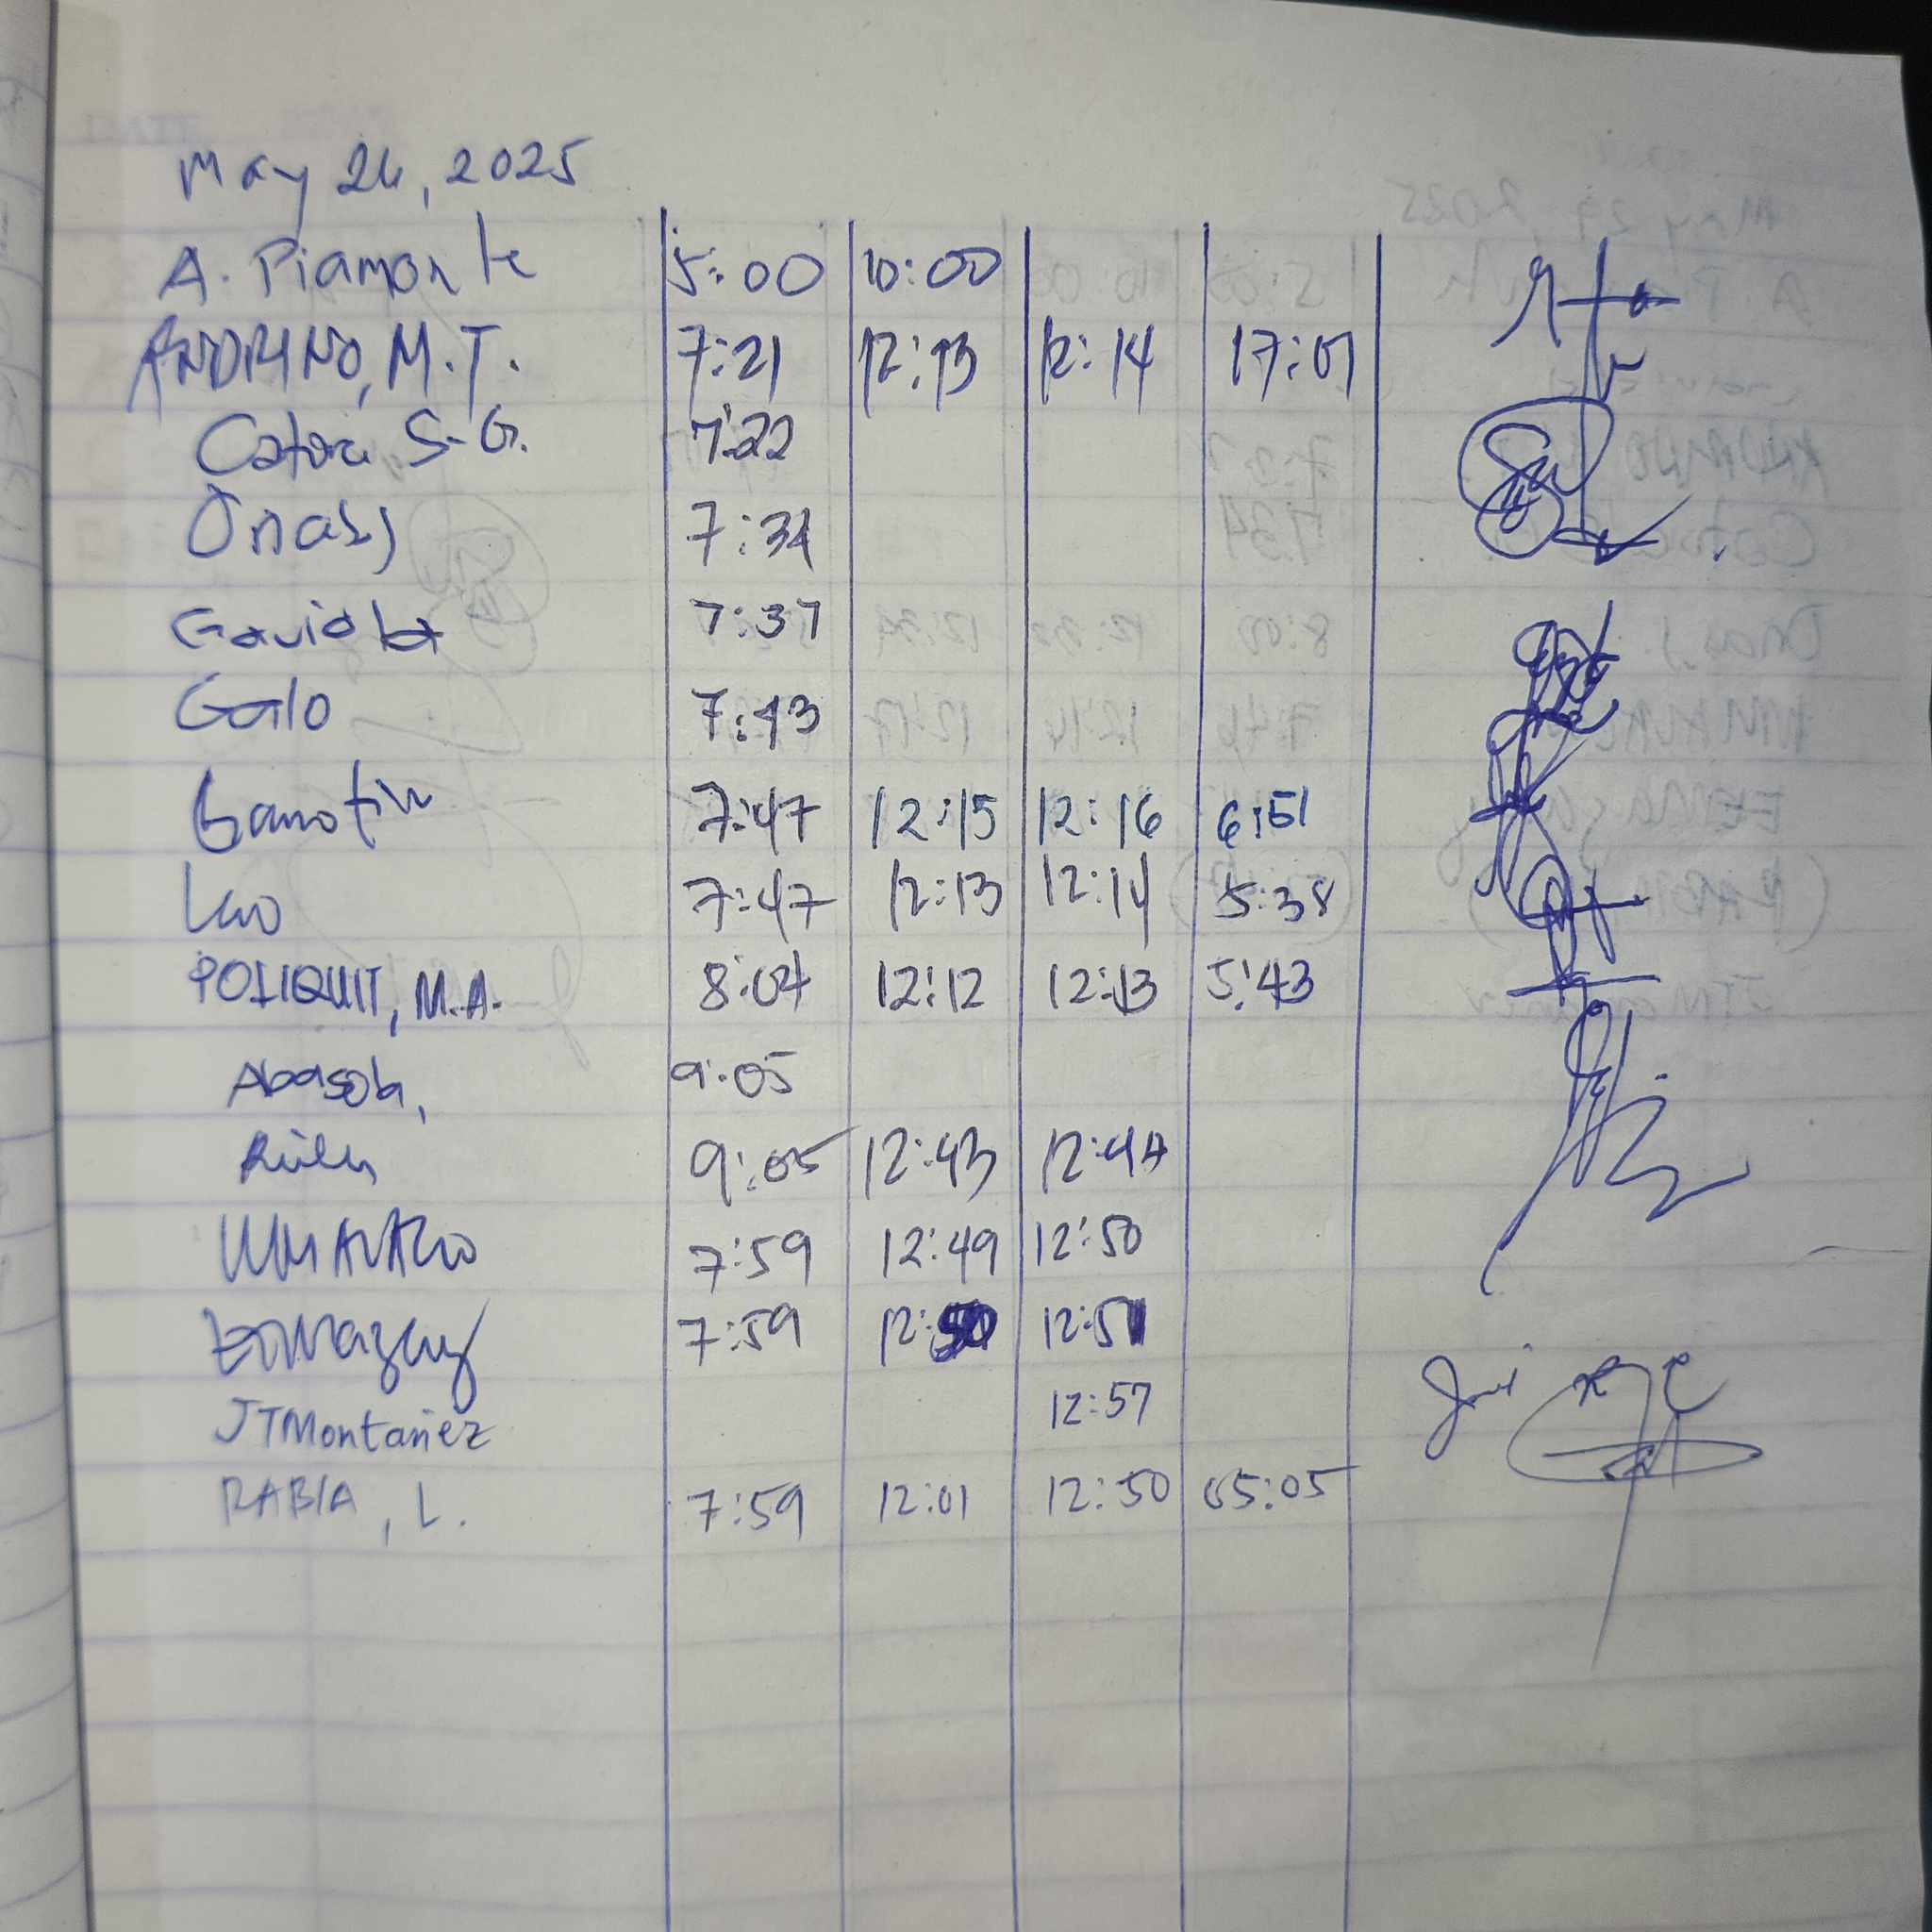 May 26, 2025
A. Piamonte 5:00 10:00
ANDRINO, M.T. 7:21 12:13 12:14 17:01
S.G. 7:22
Onas J 7:34
Gaviola 7:37
Galo 7:43
7:47 12:15 12:16 6:51
Leo 7:47 12:13 12:14 5:38
POLIQUIT, M.A. 8:07 12:12 12:13 5:43
Abasola, 9:05
9:05 12:43 12:44
7:59 12:49 12:50
7:59 12:50 12:51
JTMontañez 12:57
RABIA, L. 7:59 12:01 12:50 05:05